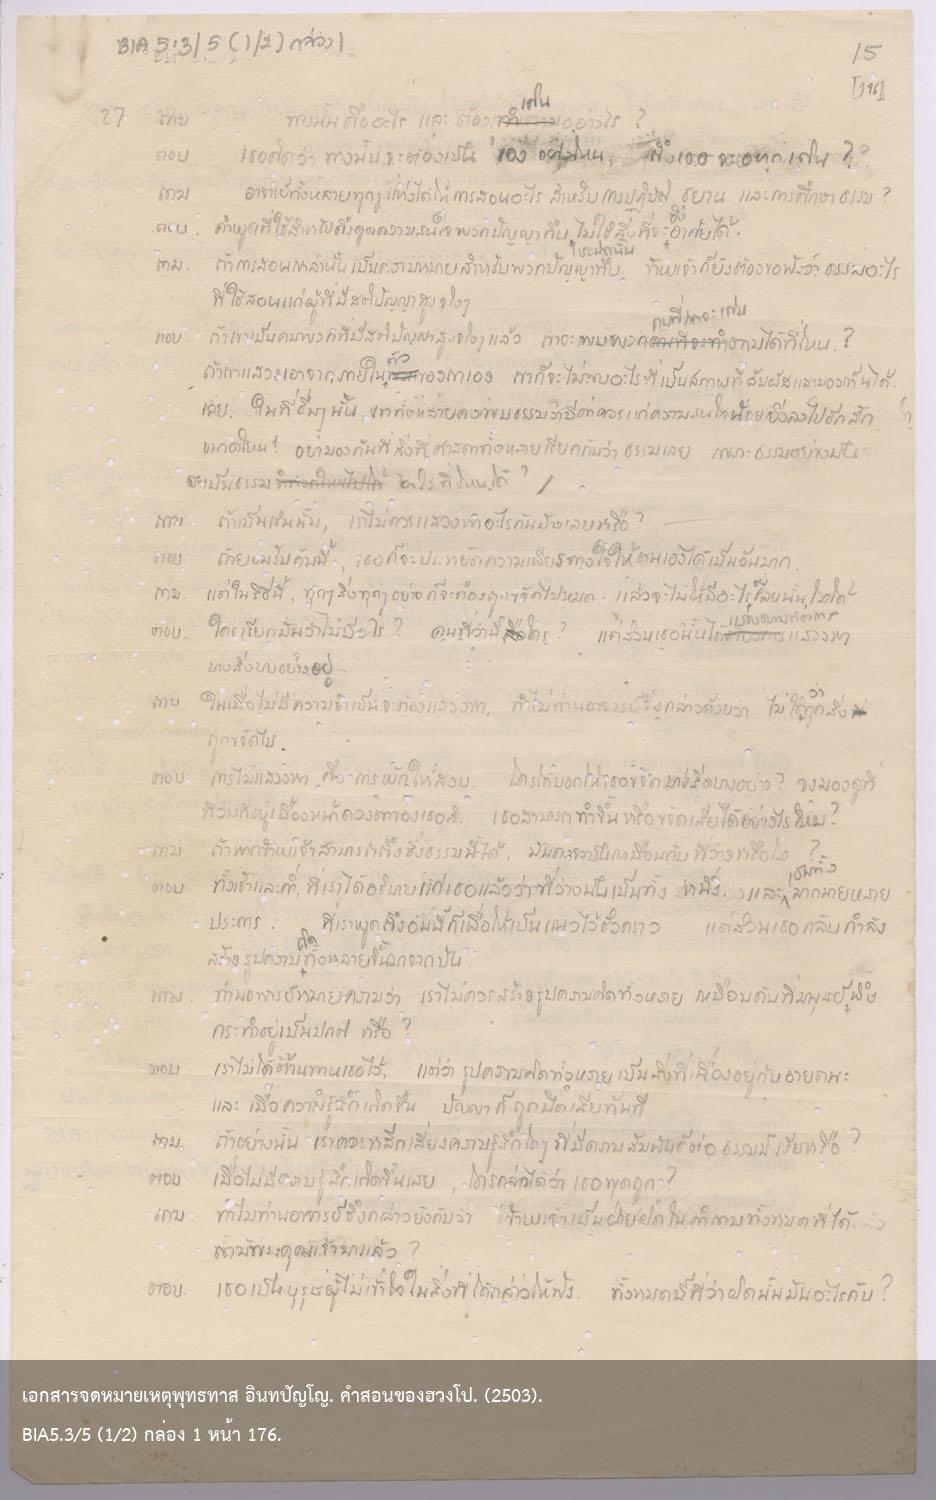 BIA 5.3/5 (1/2) กล่อง 1
15
[176]
27 ถาม ทางนั้นคืออะไร และ ต้องเดินอย่างไร ?
ตอบ เธอคิดว่า ทางนั้นจะต้องเป็น ของ อยู่ที่ไหน, ซึ่งเธอจะออกเดิน ?
ถาม อาจารย์ทั้งหลายทุกๆ แห่งได้ให้การสอนอะไร สำหรับการปฏิบัติธฺยาน และการศึกษาธรรม ?
ตอบ. คำพูดที่ใช้สำหรับดึงดูดความสนใจพวกปัญญาทึบ ไม่ใช่สิ่งที่จะอิงอาศัยได้.
ถาม. ถ้าการสอนเหล่านั้นเป็นความหมายสำหรับพวกปัญญาทึบ ข้าพเจ้าก็ยังต้องขอฟังว่า ธรรมอะไร
ที่ใช้สอนแก่ผู้ที่มีสติปัญญาสูงจริงๆ
ตอบ ถ้าเขาเป็นคนพวกที่มีสติปัญญาสูงจริงๆ แล้ว เขาจะพบพวกคนที่เขาจะเดินตามได้ที่ไหน. ?
ถ้าเขาแสวงเอาจากภายในตัวของเขาเอง เขาก็จะไม่พบอะไรที่เป็นสภาพที่สัมผัสและมองเห็นได้
เลย. ในที่อื่นๆ นั้น เขาทั้งหลายคงพบธรรมที่มีค่าควรแก่ความสนใจน้อยยิ่งลงไปอีกสัก
ขนาดไหน! อย่ามองกันที่สิ่งที่ศาสดาทั้งหลายเรียกกันว่า ธรรมเลย เพราะธรรมอย่างนั้น
จะเป็นธรรม อะไรที่ไหนได้ ?
ถาม ถ้าเป็นเช่นนั้น, เราไม่ควรแสวงหาอะไรกันบ้างเลยหรือ ?
ตอบ. ถ้ายอมรับดังนี้, เธอก็จะประหยัดความเพียรทางใจให้ตนเองได้เป็นอันมาก.
ถาม. แต่ในวิธีนี้, ทุกๆ สิ่งทุกๆ อย่างก็จะต้องถูกขจัดไปหมด. แล้วจะไม่ให้มีอะไรเลยนั้นไม่ได้
ตอบ. ใครเรียกมันว่าไม่มีอะไร ? คนที่ว่านี้คือใคร ? แต่ส่วนเธอนั้นได้ แสวงหา
บางสิ่งบางอย่างอยู่.
ถาม ในเมื่อไม่มีความจำเป็นจะต้องแสวงหา, ทำไมท่านอาจารย์จึงกล่าวด้วยว่า ไม่ใช่ว่าทุกสิ่ง
ถูกขจัดไป.
ตอบ. การไม่แสวงหา คือการพักให้สงบ. ใครได้บอกให้เธอขจัดบางสิ่งบางอย่าง ? จงมองดูที่
ที่ว่างที่อยู่เบื้องหน้าดวงตาของเธอสิ. เธอสามารถทำขึ้นหรือขจัดเสียได้อย่างไรไหม ?
ถาม ถ้าหากข้าพเจ้าสามารถเข้าถึงซึ่งธรรมนี้ได้, มันคงจะเป็นเหมือนกับที่ว่างหรือไฉน ?
ตอบ ทั้งเช้าและค่ำ, ที่เราได้อธิบายแก่เธอแล้วว่าที่ว่างนั้นเป็นทั้งหนึ่ง. และเป็นทั้งมากมายหลาย
ประการ. ที่เราพูดถึงอันนี้ก็เพื่อให้เป็นแนวไว้ชั่วคราว แต่ส่วนเธอกลับกำลัง
สร้างรูปความคิดทั้งหลายขึ้นมาจากมัน.
ถาม. ท่านอาจารย์หมายความว่า เราไม่ควรสร้างรูปความคิดทั้งหลาย เหมือนดังที่มนุษย์ผู้ซึ่ง
กระทำอยู่เป็นปกติ หรือ ?
ตอบ เราไม่ได้ต้านทานเธอไว้, แต่ว่า รูปความคิดทั้งหลายเป็นสิ่งที่เนื่องอยู่กับอายตนะ
และ เมื่อความรู้สึกเกิดขึ้น ปัญญาก็ถูกปิดเสียทันที
ถาม. ถ้าอย่างนั้น เราควรหลีกเลี่ยงความรู้สึกใดๆ ที่มีความสัมพันธ์ต่อ ธรรมนี้เสียหรือ ?
ตอบ เมื่อไม่มีความรู้สึกเกิดขึ้นเลย, ใครกล่าวได้ว่า เธอพูดถูก ?
ถาม ทำไมท่านอาจารย์จึงกล่าวยังกับว่า ข้าพเจ้าเป็นฝ่ายผิดในคำถามทั้งหมดที่ได้
ถามพระคุณเจ้ามาแล้ว ?
ตอบ. เธอเป็นบุรุษผู้ไม่เข้าใจในสิ่งที่ได้กล่าวให้ฟัง. ทั้งหมดนี้ที่ว่าผิดนั้นมันอะไรกัน ?
เอกสารจดหมายเหตุพุทธทาส อินทปัญโญ. คำสอนของฮวงโป. (2503).
BIA5.3/5 (1/2) กล่อง 1 หน้า 176.